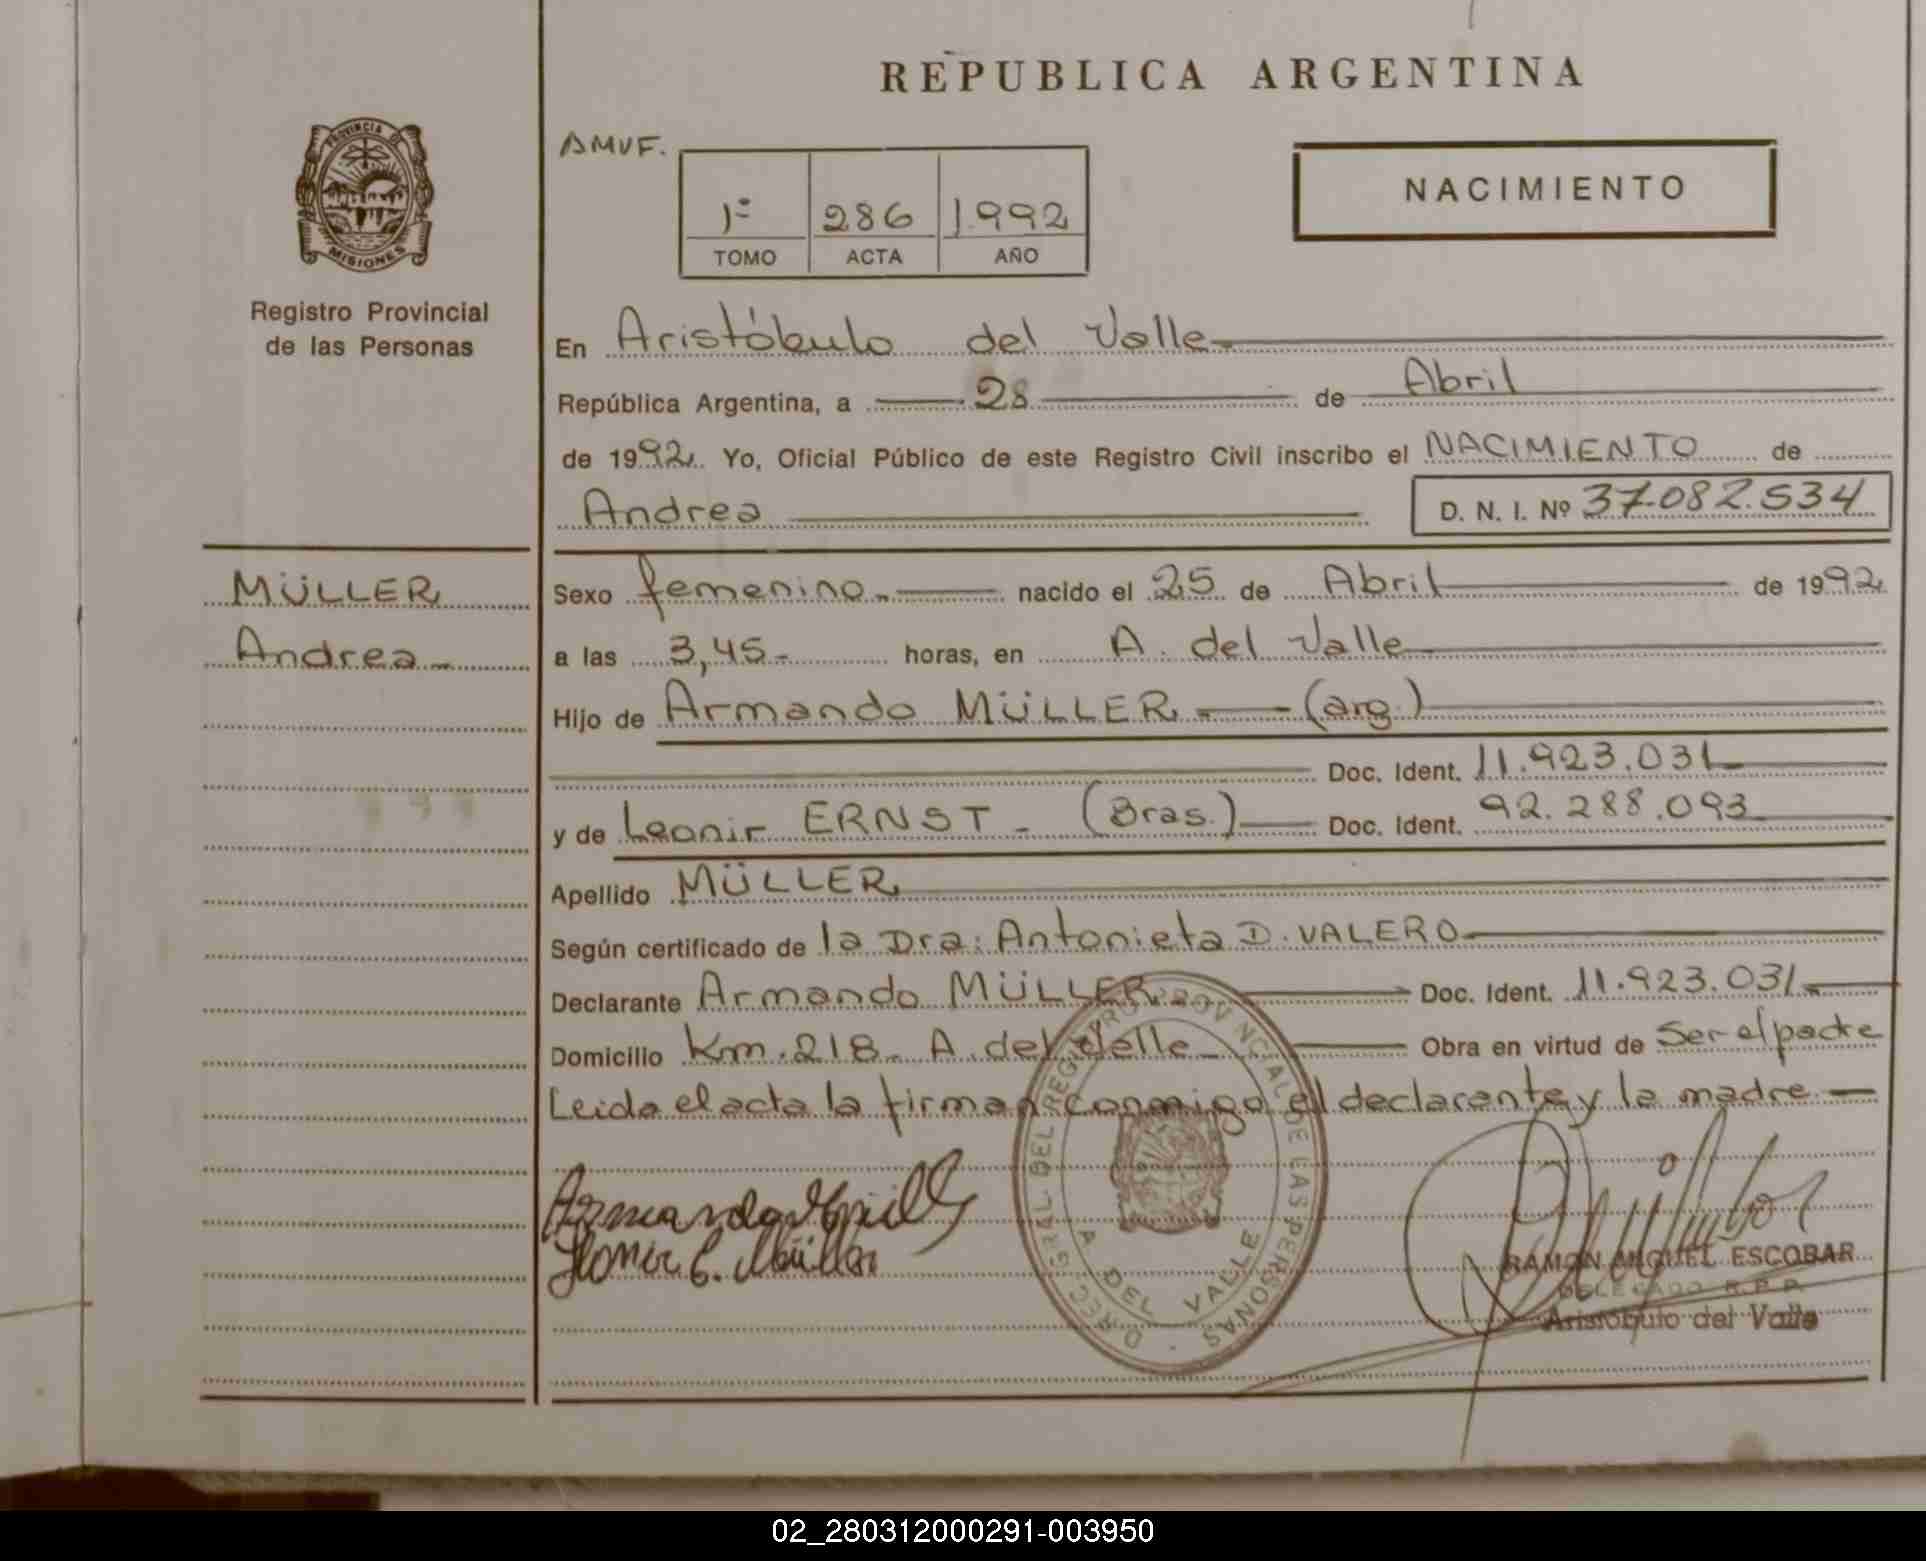 REPUBLICA ARGENTINA
AMVF.
PROVINCIA D
MISIONES
Registro Provincial
de las Personas
1º 286 1.992
TOMO ACTA AÑO
NACIMIENTO
En Aristóbulo del Valle
República Argentina, a 28 de Abril
de 1992. Yo, Oficial Público de este Registro Civil inscribo el NACIMIENTO de
Andrea D. N. I. Nº 37.082.534
MÜLLER
Andrea
Sexo femenino.- nacido el 25 de Abril de 1992
a las 3,45.- horas, en A. del Valle
Hijo de Armando MÜLLER (arg.)
Doc. Ident. 11.923.031
y de Leonir ERNST - (Bras.) Doc. Ident. 92.288.093
Apellido MÜLLER
Según certificado de la Dra: Antonieta D. VALERO
Declarante Armando MÜLLER Doc. Ident. 11.923.031
Domicilio Km. 218. A. del Valle Obra en virtud de Ser el padre
Leida el acta la firman conmigo el declarante y la madre
DIREC. GRAL. DEL REGISTRO PROVINCIAL DE LAS PERSONAS
A. DEL VALLE
Armando Müller
Leonir E. Müller
RAMON MIGUEL ESCOBAR
DELEGADO R. P. P.
Aristóbulo del Valle
02_280312000291-003950